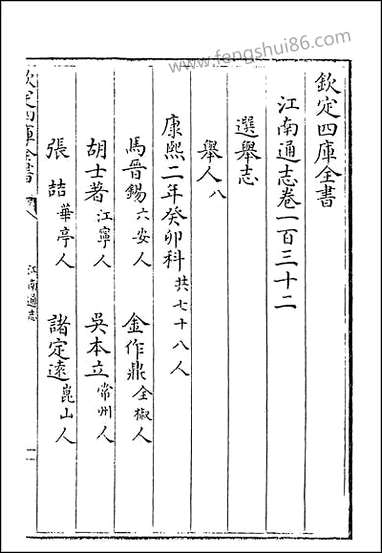 www.fengshui86.com
欽定四庫全書
江南通志卷一百三十二
選舉志
舉人八
康熙二年癸卯科共七十八人
馬晉錫六安人 金作鼎全椒人
胡士著江寧人 吳本立常州人
張喆華亭人 諸定遠崑山人
欽定四庫全書
江南通志
一